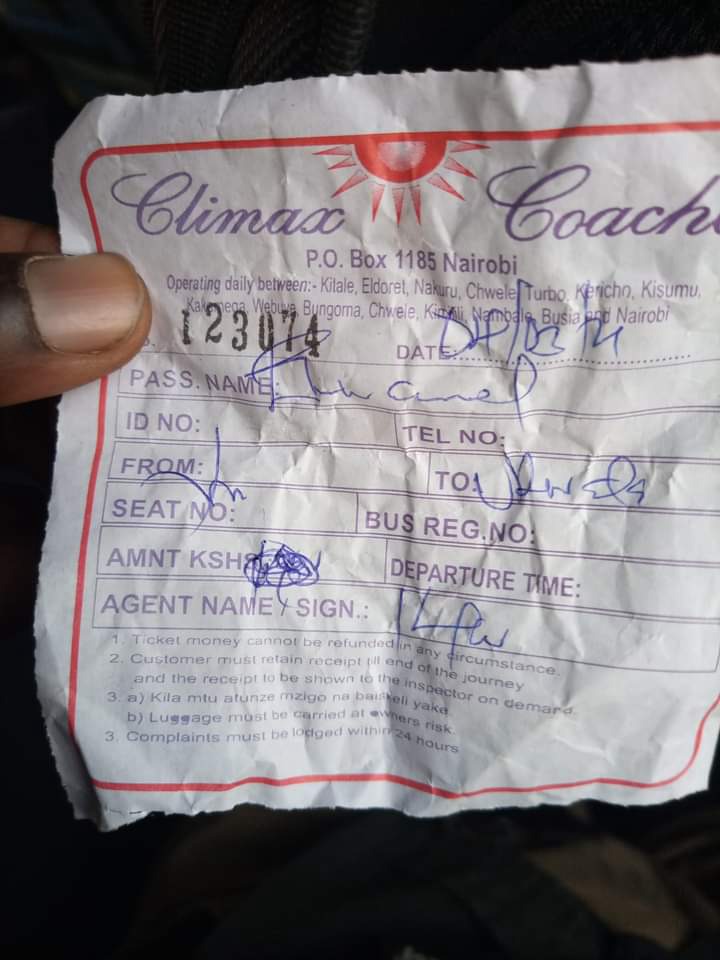 Climax Coach
P.O. Box 1185 Nairobi
Operating daily between:- Kitale, Eldoret, Nakuru, Chwele, Turbo, Kericho, Kisumu,
Kakamega, Webuye, Bungoma, Chwele, Kimilili, Nambale, Busia and Nairobi
123074 DATE:
PASS. NAME:
ID NO: TEL NO:
FROM: TO:
SEAT NO: BUS REG.NO:
AMNT KSHS DEPARTURE TIME:
AGENT NAME / SIGN.:
1. Ticket money cannot be refunded in any circumstance.
2. Customer must retain receipt till end of the journey
and the receipt to be shown to the inspector on demand.
3. a) Kila mtu afunze mzigo na baiskeli yake
b) Luggage must be carried at owners risk.
3. Complaints must be lodged within 24 hours